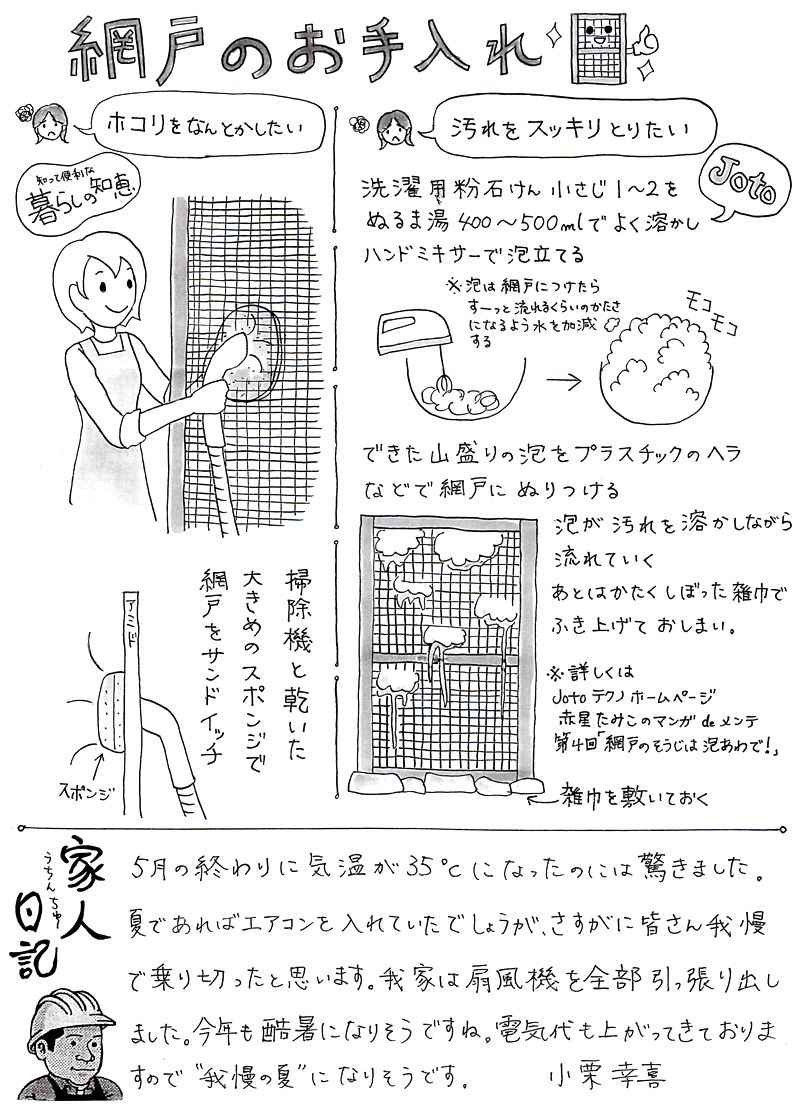 網戸のお手入れ
ホコリをなんとかしたい
知って便利な
暮らしの知恵
掃除機と乾いた
大きめのスポンジで
網戸をサンドイッチ
アミド
スポンジ
汚れをスッキリとりたい
Joto
洗濯用粉石けん小さじ1〜2を
ぬるま湯400〜500mlでよく溶かし
ハンドミキサーで泡立てる
※泡は網戸につけたら
すーっと流れるくらいのかたさ
になるよう水を加減
する
モコ
モコ
できた山盛りの泡をプラスチックのヘラ
などで網戸にぬりつける
泡が汚れを溶かしながら
流れていく
あとはかたくしぼった雑巾で
ふき上げておしまい。
※詳しくは
Jotoテクノホームページ
赤星たみこのマンガdeメンテ
第4回「網戸のそうじは泡あわで!」
雑巾を敷いておく
家人
うちんちゅ
日記
5月の終わりに気温が35℃になったのには驚きました。
夏であればエアコンを入れていたでしょうが、さすがに皆さん我慢
で乗り切ったと思います。我家は扇風機を全部引っ張り出し
ました。今年も酷暑になりそうですね。電気代も上がってきておりま
すので"我慢の夏"になりそうです。 小栗幸喜